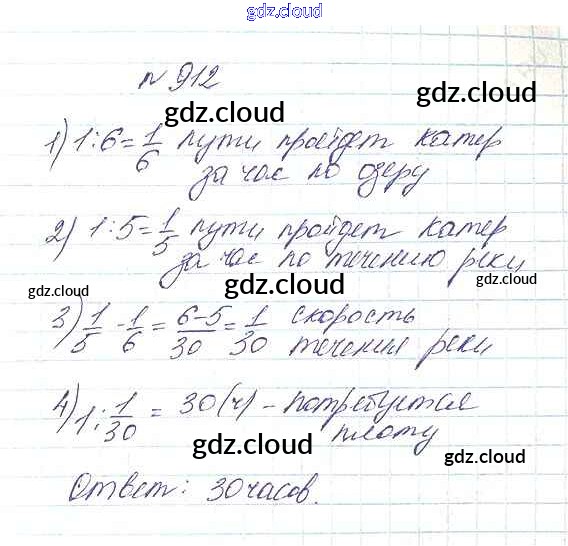 gdz.cloud
№ 912
gdz.cloud gdz.cloud
1) 1:6=1/6 пути пройдет катер
за час по озеру
gdz.cloud gdz.cloud
2) 1:5=1/5 пути пройдет катер
за час по течению реки
gdz.cloud gdz.cloud gdz.cloud
3) 1/5 - 1/6 = 6-5/30 = 1/30 скорость
течения реки
gdz.cloud gdz.cloud
4) 1:1/30 = 30(ч) - потребуется
плоту
gdz.cloud gdz.cloud
Ответ: 30 часов.
gdz.cloud